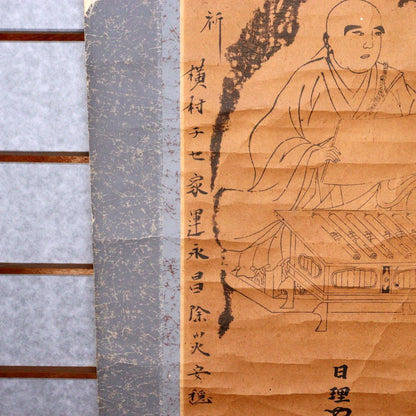 祈
横村チセ家運永昌除災安穏
日理